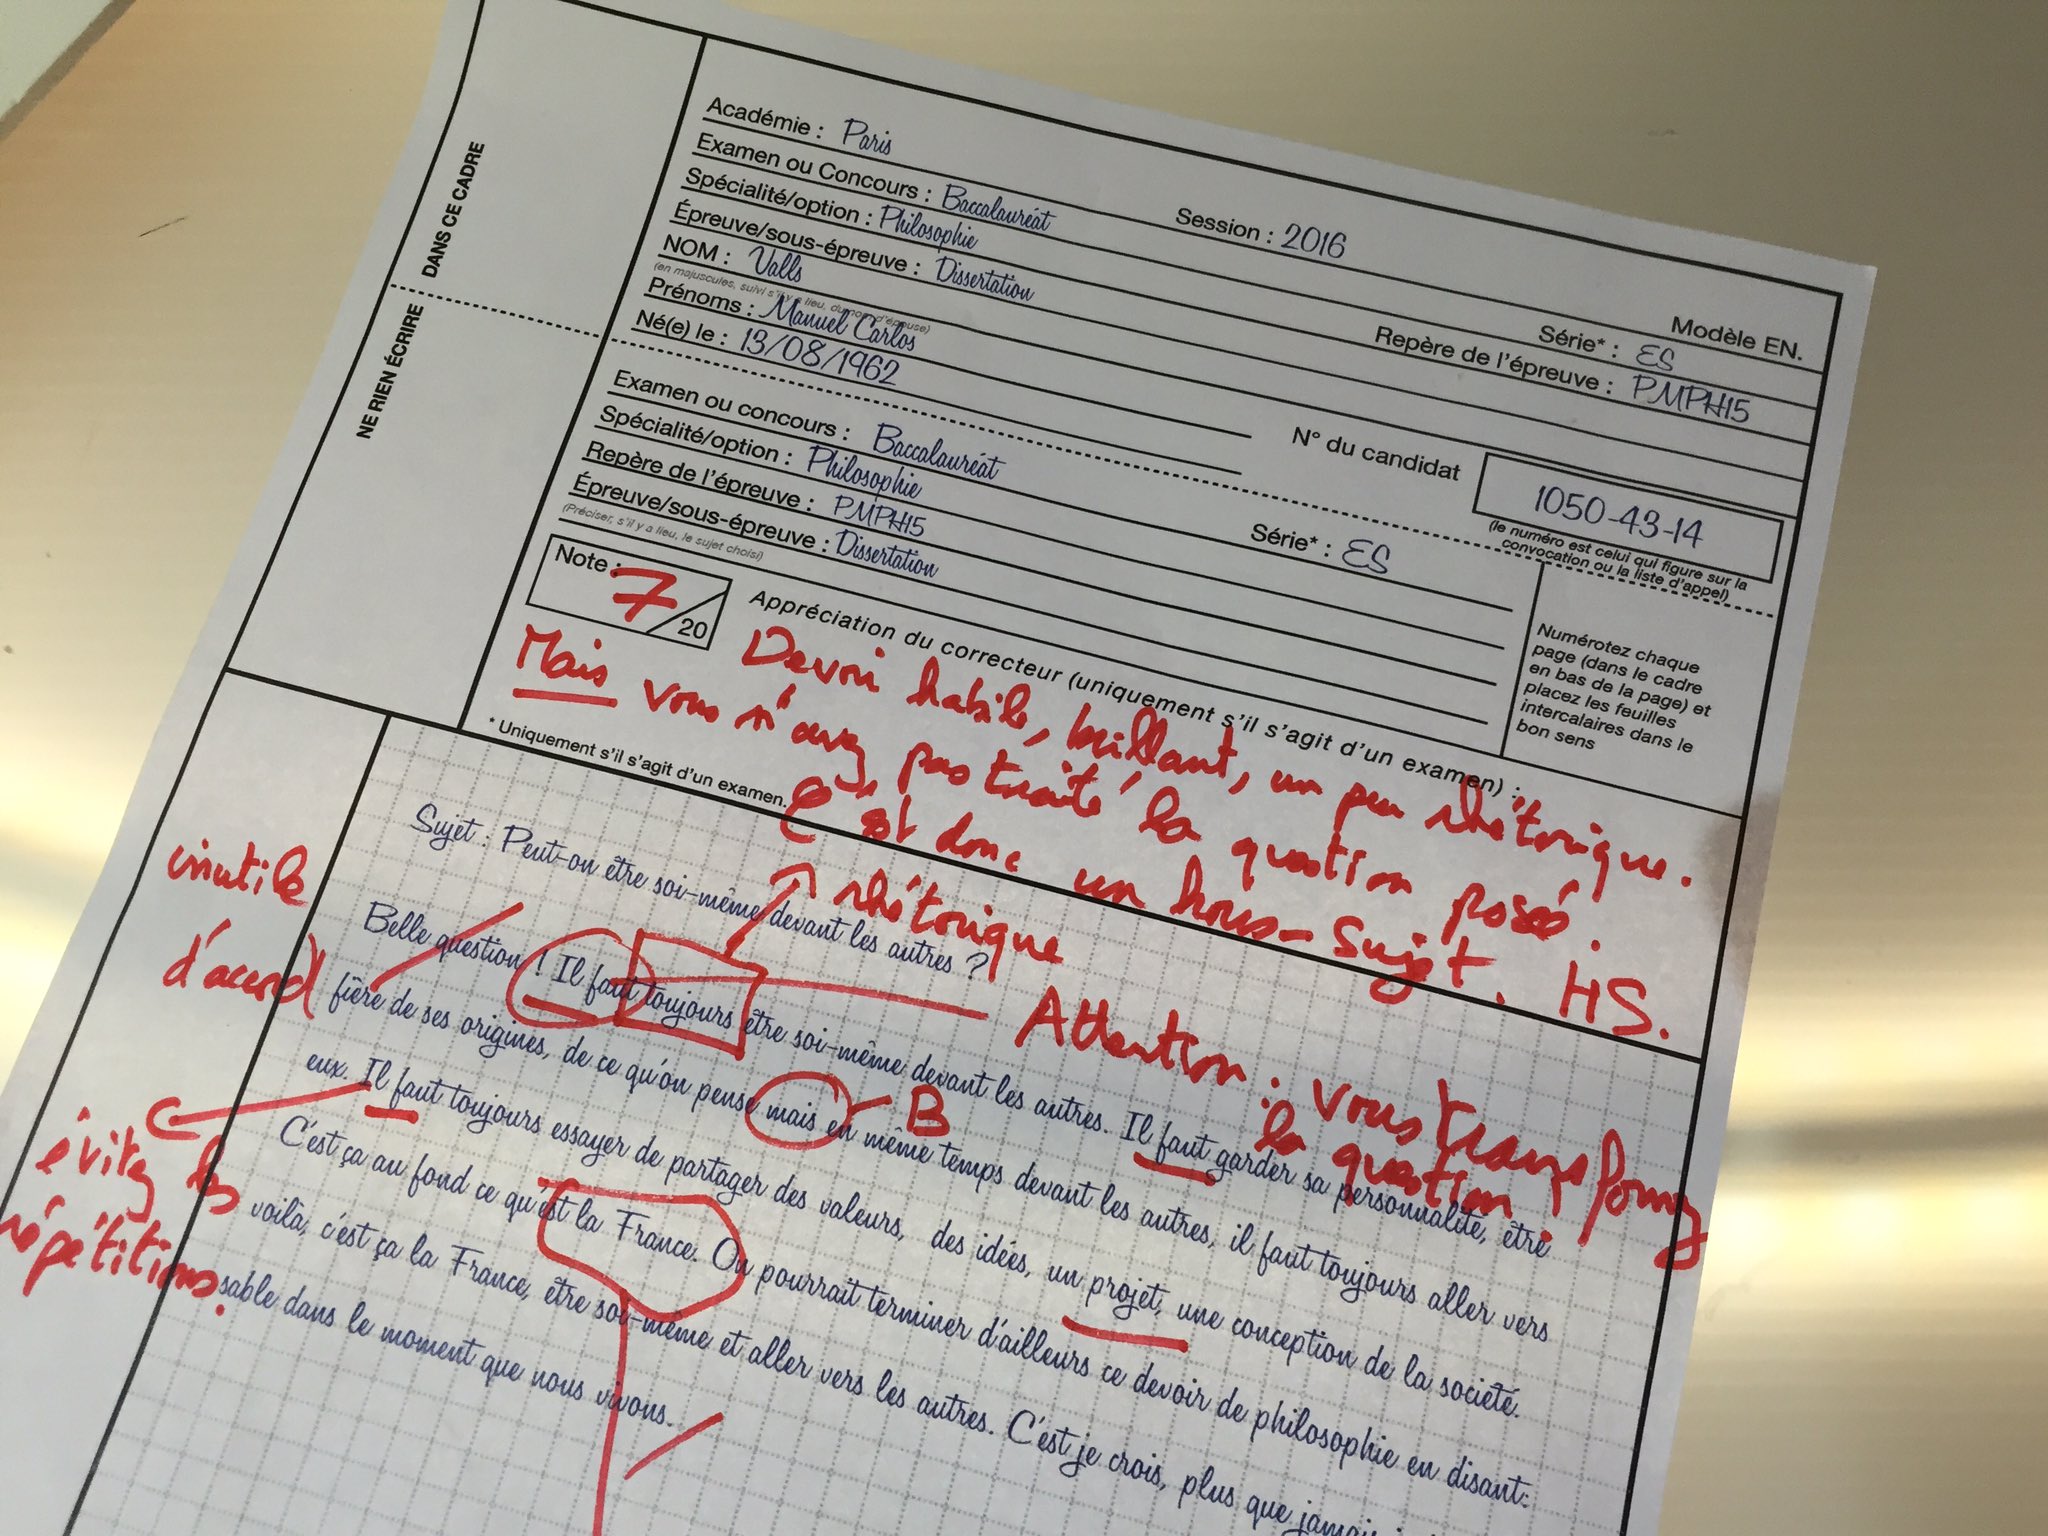 Académie : Paris
Session : 2016
Modèle EN.
Examen ou Concours : Baccalauréat
Série* : ES
Spécialité/option : Philosophie
Repère de l'épreuve : PMPH15
Épreuve/sous-épreuve : Dissertation
NOM : Valls
(en majuscules, suivi s'il y a lieu, du nom d'épouse)
Prénoms : Manuel Carlos
Né(e) le : 13/08/1962
N° du candidat
1050-43-14
(le numéro est celui qui figure sur la
convocation ou la liste d'appel)
DANS CE CADRE
NE RIEN ÉCRIRE
Examen ou concours : Baccalauréat
Série* : ES
Spécialité/option : Philosophie
Repère de l'épreuve : PMPH15
Épreuve/sous-épreuve : Dissertation
(Préciser, s'il y a lieu, le sujet choisi)
Numérotez chaque
page (dans le cadre
en bas de la page) et
placez les feuilles
intercalaires dans le
bon sens
Note : 7/20
Appréciation du correcteur (uniquement s'il s'agit d'un examen) :
Devoir habile, brillant, un peu rhétorique.
Mais vous n'avez pas traité la question posée.
C'est donc un hors-sujet. HS.
* Uniquement s'il s'agit d'un examen.
Sujet : Peut-on être soi-même devant les autres ?
rhétorique
inutile
d'accord
Attention : vous transformez
la question.
Belle question ! Il faut toujours être soi-même devant les autres. Il faut garder sa personnalité, être
fière de ses origines, de ce qu'on pense mais en même temps devant les autres, il faut toujours aller vers
B
eux. Il faut toujours essayer de partager des valeurs, des idées, un projet, une conception de la société.
évitez les
répétitions.
C'est ça au fond ce qu'est la France. On pourrait terminer d'ailleurs ce devoir de philosophie en disant:
voilà, c'est ça la France, être soi-même et aller vers les autres. C'est je crois, plus que jamais
sable dans le moment que nous vivons.